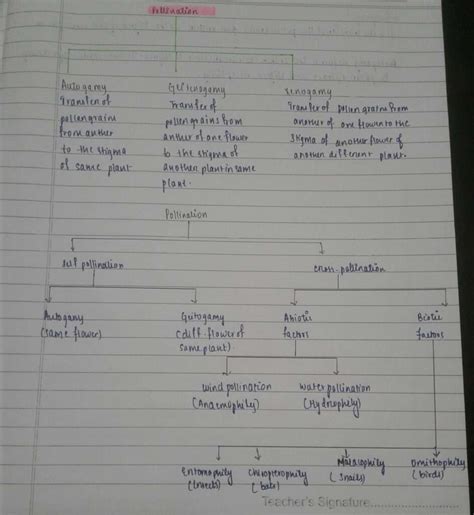 Pollination
Autogamy Geitenogamy xenogamy
Transfer of Transfer of Transfer of pollen grains from
pollen grains pollen grains from another of one flower to the
from anther anther of one flower stigma of another flower of
to the stigma to the stigma of another different plant.
of same plant another plant in same
plant.
Pollination
self pollination cross-pollination
Autogamy Geitogamy Abiotic Biotic
(same flower) (diff. flower of factors factors
same plant)
wind pollination water pollination
(Anaemophily) (Hydrophily)
Entomophily Chiropterophily Malacophily Ornithophily
(Insects) (bats) (snails) (birds)
Teacher's Signature